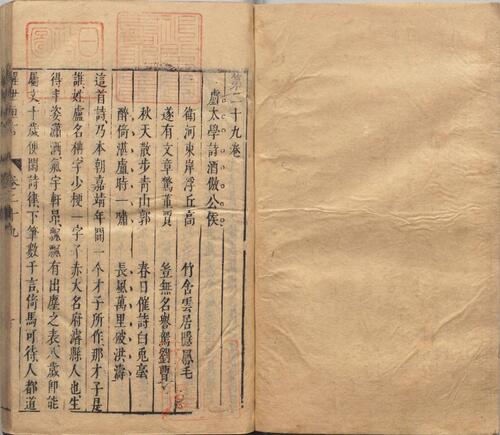 第二十九卷
盧太學詩酒傲公侯
衛河東岸浮丘高　竹舍雲居隱鳳毛
遂有文章驚董賈　豈無名譽駕劉曹
秋天散步青山郭　春日催詩白兎毫
醉倚湛盧時一嘯　長風萬里破洪濤
這首詩乃本朝嘉靖年間一个才子所作那才子是
誰姓盧名柟字少楩一字子赤大名府濬縣人也生
得丰姿瀟洒氣宇軒昂飄飄有出塵之表八歲卽能
屬文十歲便閑詩律下筆數千言倚馬可待人都道
醒世恒言　卷二十九